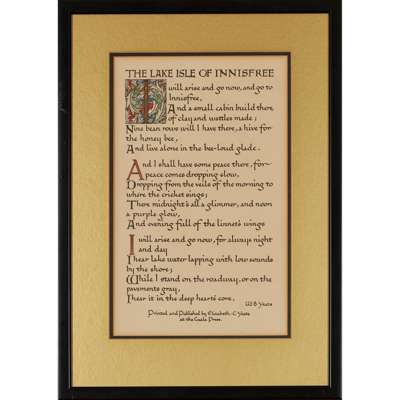 THE LAKE ISLE OF INNISFREE
I will arise and go now, and go to
Innisfree,
And a small cabin build there
of clay and wattles made;
Nine bean rows will I have there, a hive for
the honey bee,
And live alone in the bee-loud glade.
And I shall have some peace there, for
peace comes dropping slow,
Dropping from the veils of the morning to
where the cricket sings;
There midnight's all a glimmer, and noon
a purple glow,
And evening full of the linnet's wings
I will arise and go now, for always night
and day
I hear lake water lapping with low sounds
by the shore;
While I stand on the roadway, or on the
pavements gray,
I hear it in the deep heart's core.
W B Yeats
Printed and Published by Elizabeth C Yeats
at the Cuala Press.